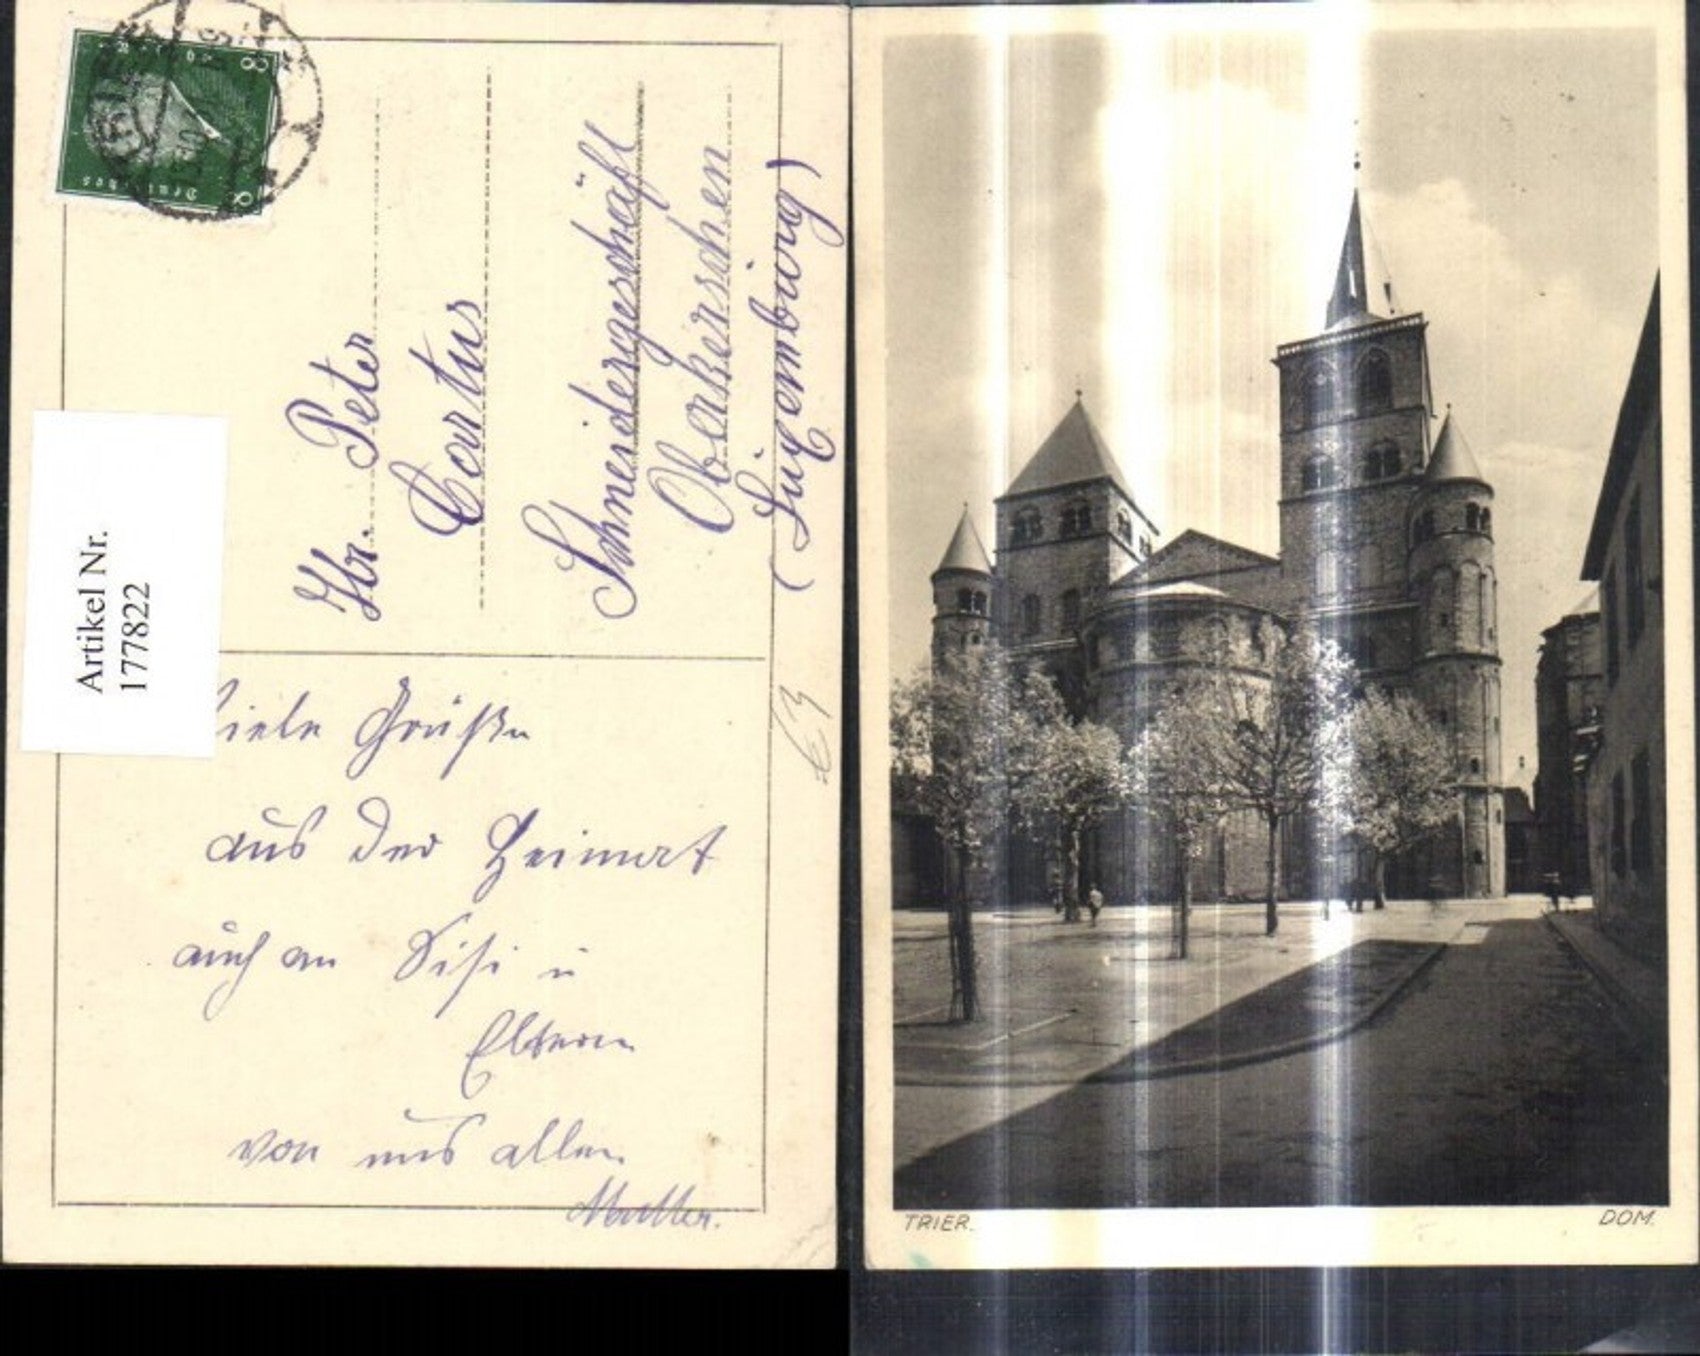 8
Deutsches
8
Artikel Nr.
177822
Hr. Peter
Cortus
Schneidergeschäft
Oberkerschen
(Luxemburg)
Viele Grüße
aus der Heimat
auch an Sisi u
Eltern
von uns allen
TRIER.
DOM.